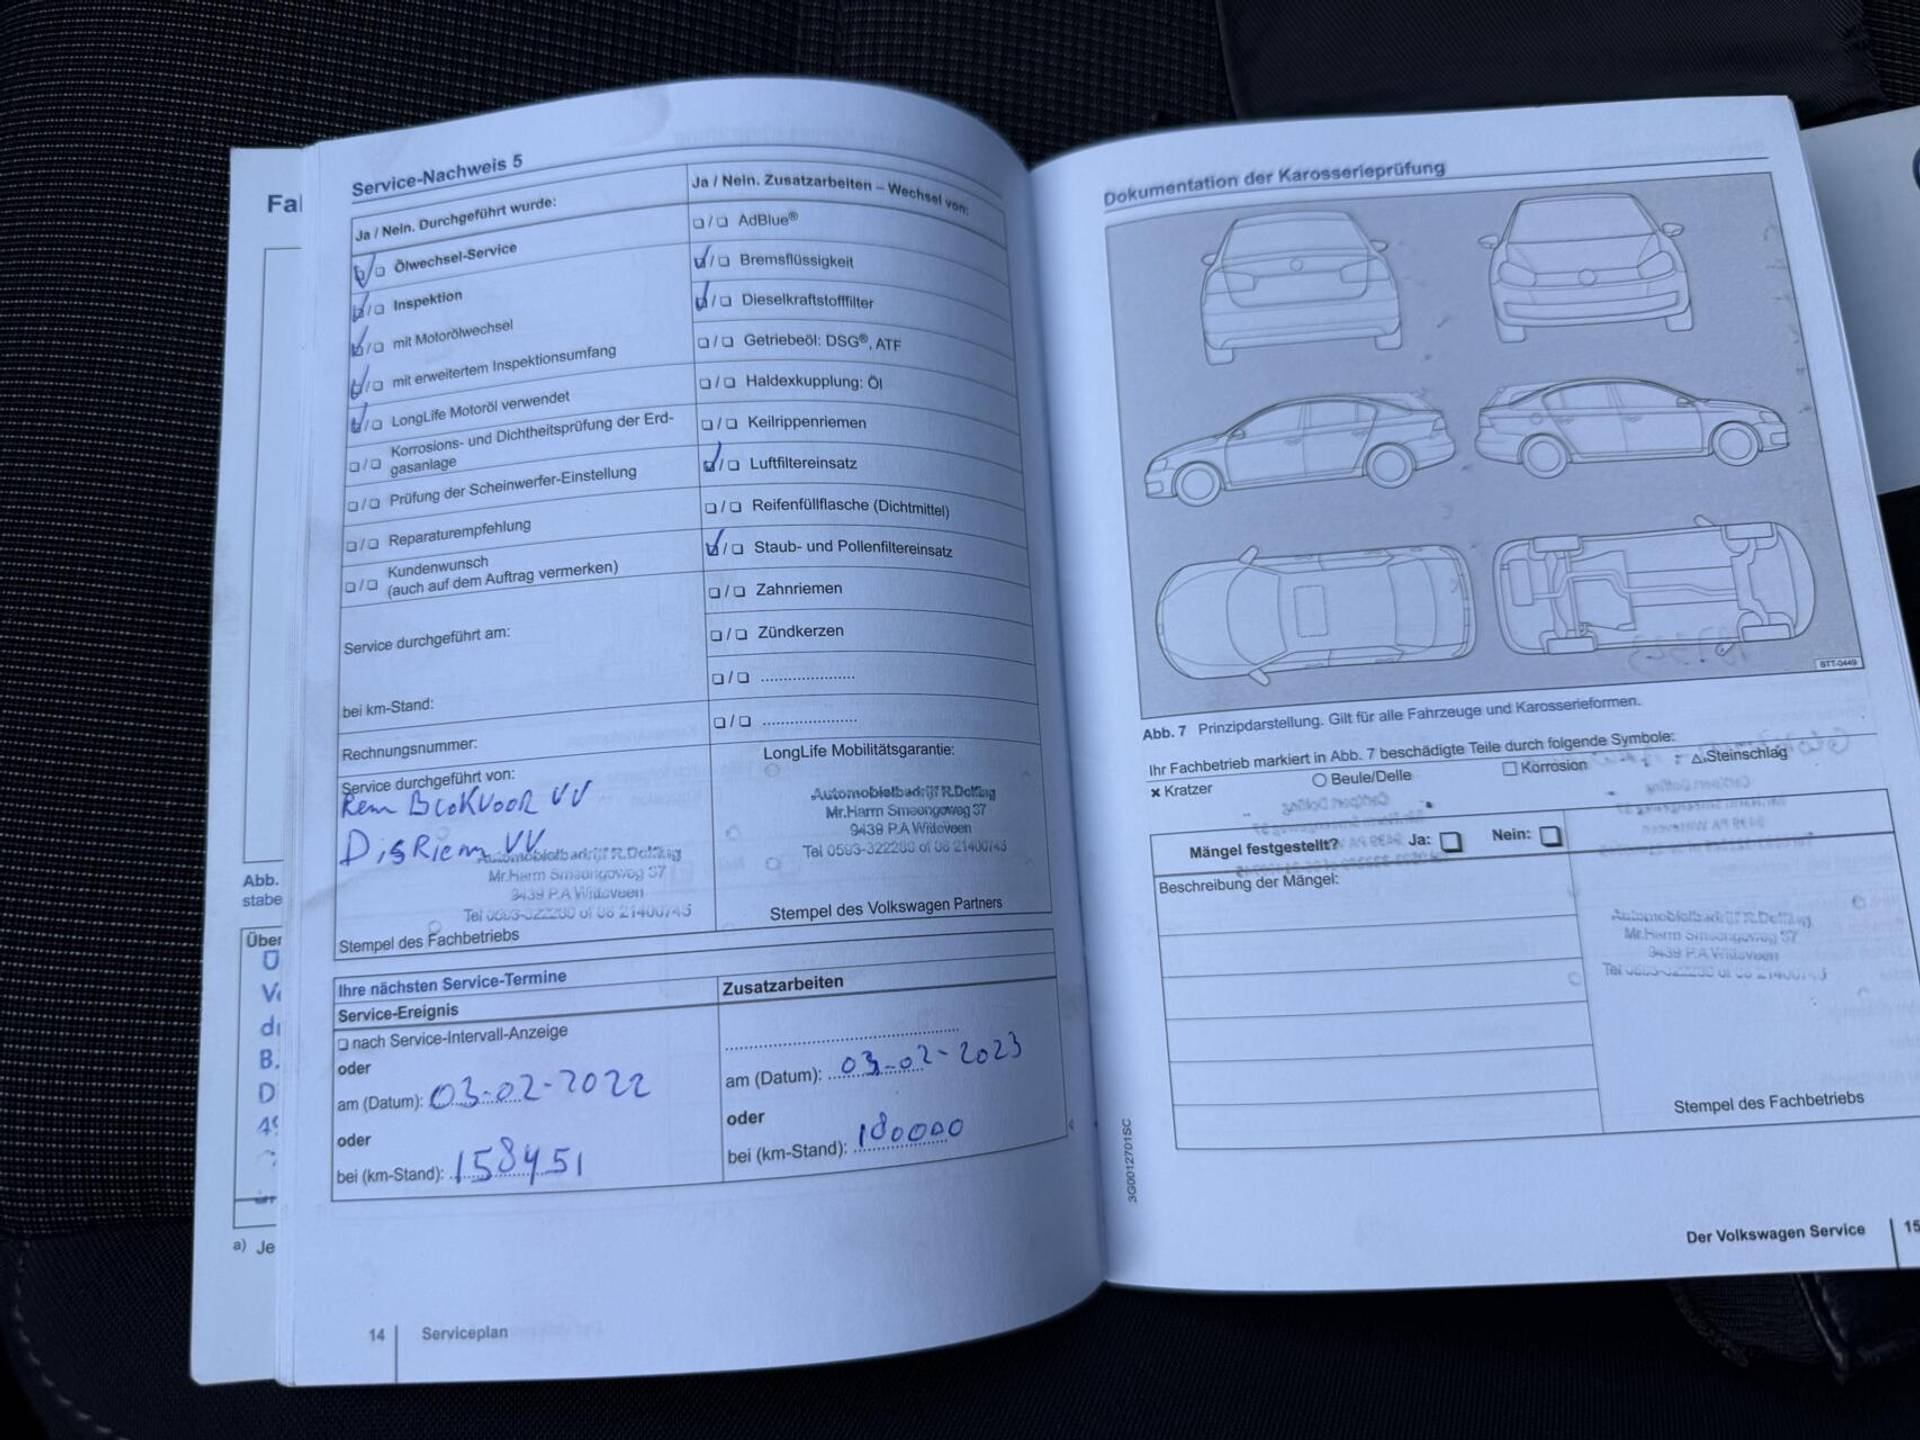 Fal
Abb.
stabe
Über
Ü
B.
D
a) Je
Service-Nachweis 5
Ja / Nein. Durchgeführt wurde:
❏/❏ Ölwechsel-Service
❏/❏ Inspektion
❏/❏ mit Motorölwechsel
❏/❏ mit erweitertem Inspektionsumfang
❏/❏ LongLife Motoröl verwendet
❏/❏ Korrosions- und Dichtheitsprüfung der Erd-
gasanlage
❏/❏ Prüfung der Scheinwerfer-Einstellung
❏/❏ Reparaturempfehlung
❏/❏ Kundenwunsch
(auch auf dem Auftrag vermerken)
Service durchgeführt am:
bei km-Stand:
Rechnungsnummer:
Service durchgeführt von:
Rem BLOKVOOR VV
DisRiem VV
Automobielbedrijf R.Dolfing
Mr.Harm Smeengeweg 37
9439 P.A Witteveen
Tel 0593-322280 of 06 21400745
Stempel des Fachbetriebs
Ja / Nein. Zusatzarbeiten – Wechsel von:
❏/❏ AdBlue®
❏/❏ Bremsflüssigkeit
❏/❏ Dieselkraftstofffilter
❏/❏ Getriebeöl: DSG®, ATF
❏/❏ Haldexkupplung: Öl
❏/❏ Keilrippenriemen
❏/❏ Luftfiltereinsatz
❏/❏ Reifenfüllflasche (Dichtmittel)
❏/❏ Staub- und Pollenfiltereinsatz
❏/❏ Zahnriemen
❏/❏ Zündkerzen
❏/❏ ....................
❏/❏ ....................
LongLife Mobilitätsgarantie:
Automobielbedrijf R.Dolfing
Mr.Harm Smeengeweg 37
9439 P.A Witteveen
Tel 0593-322280 of 06 21400745
Stempel des Volkswagen Partners
Ihre nächsten Service-Termine
Service-Ereignis
❏ nach Service-Intervall-Anzeige
oder
am (Datum): 03-02-2022
oder
bei (km-Stand): 158451
Zusatzarbeiten
am (Datum): 03-02-2023
oder
bei (km-Stand): 180000
14 Serviceplan
Dokumentation der Karosserieprüfung
BTT-0449
Abb. 7 Prinzipdarstellung. Gilt für alle Fahrzeuge und Karosserieformen.
Ihr Fachbetrieb markiert in Abb. 7 beschädigte Teile durch folgende Symbole:
× Kratzer ○ Beule/Delle ❏ Korrosion △ Steinschlag
Mängel festgestellt? Ja: ❏ Nein: ❏
Beschreibung der Mängel:
Automobielbedrijf R.Dolfing
Mr.Harm Smeengeweg 37
9439 P.A Witteveen
Tel 0593-322280 of 06 21400745
Stempel des Fachbetriebs
3G0012701SC
Der Volkswagen Service 15